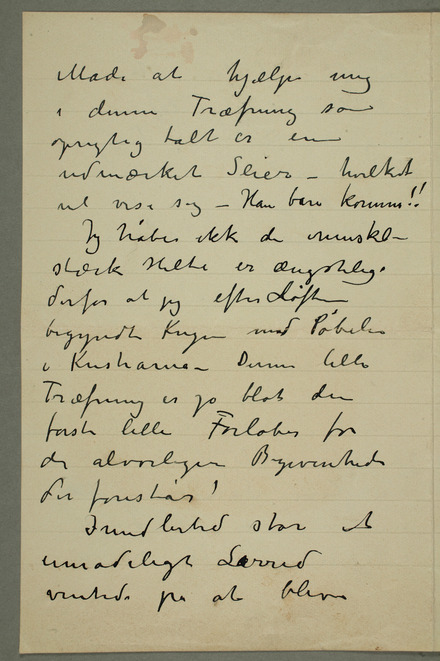 Måde at hjælpe mig
i denne Træfning som
oprigtig talt er en
udmærket Seier – hvilket
vil vise sig – Han bare komme!!
Jeg håber ikke de
stærk Helte er ængstelig
derfor at jeg efter Løfte
begyndte Krigen med Pøbelen
i Kristiania – Denne lille
Træfning er jo blot den
første lille Forløber for
de alvorligere Begivenheder
der foreståar!
Imidlertid står et
umådeligt Lærred
ventede på at blive